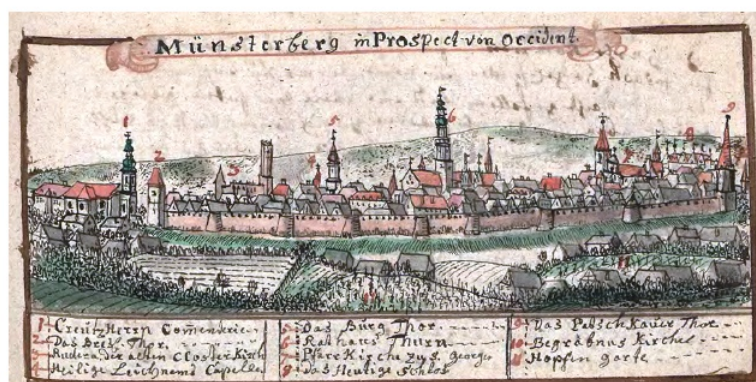 Münsterberg in Prospect von Occident.
1 2 3 4 5 6 7 8 9
11
1 Creütz Herrn Comenderie
2 Das Bresl. Thor.
3 Rudera der alten Closter Kirch
4 Heilige Leichnams Capelle
5 Das Bürg Thor
6 Rathhaus Thurn
7 Pfarr Kirche zu S. Georgen
8 das Heutige Schlos
9 Das Patschkauer Thor
10 Begräbnus Kirchel
11 Hopfen garte